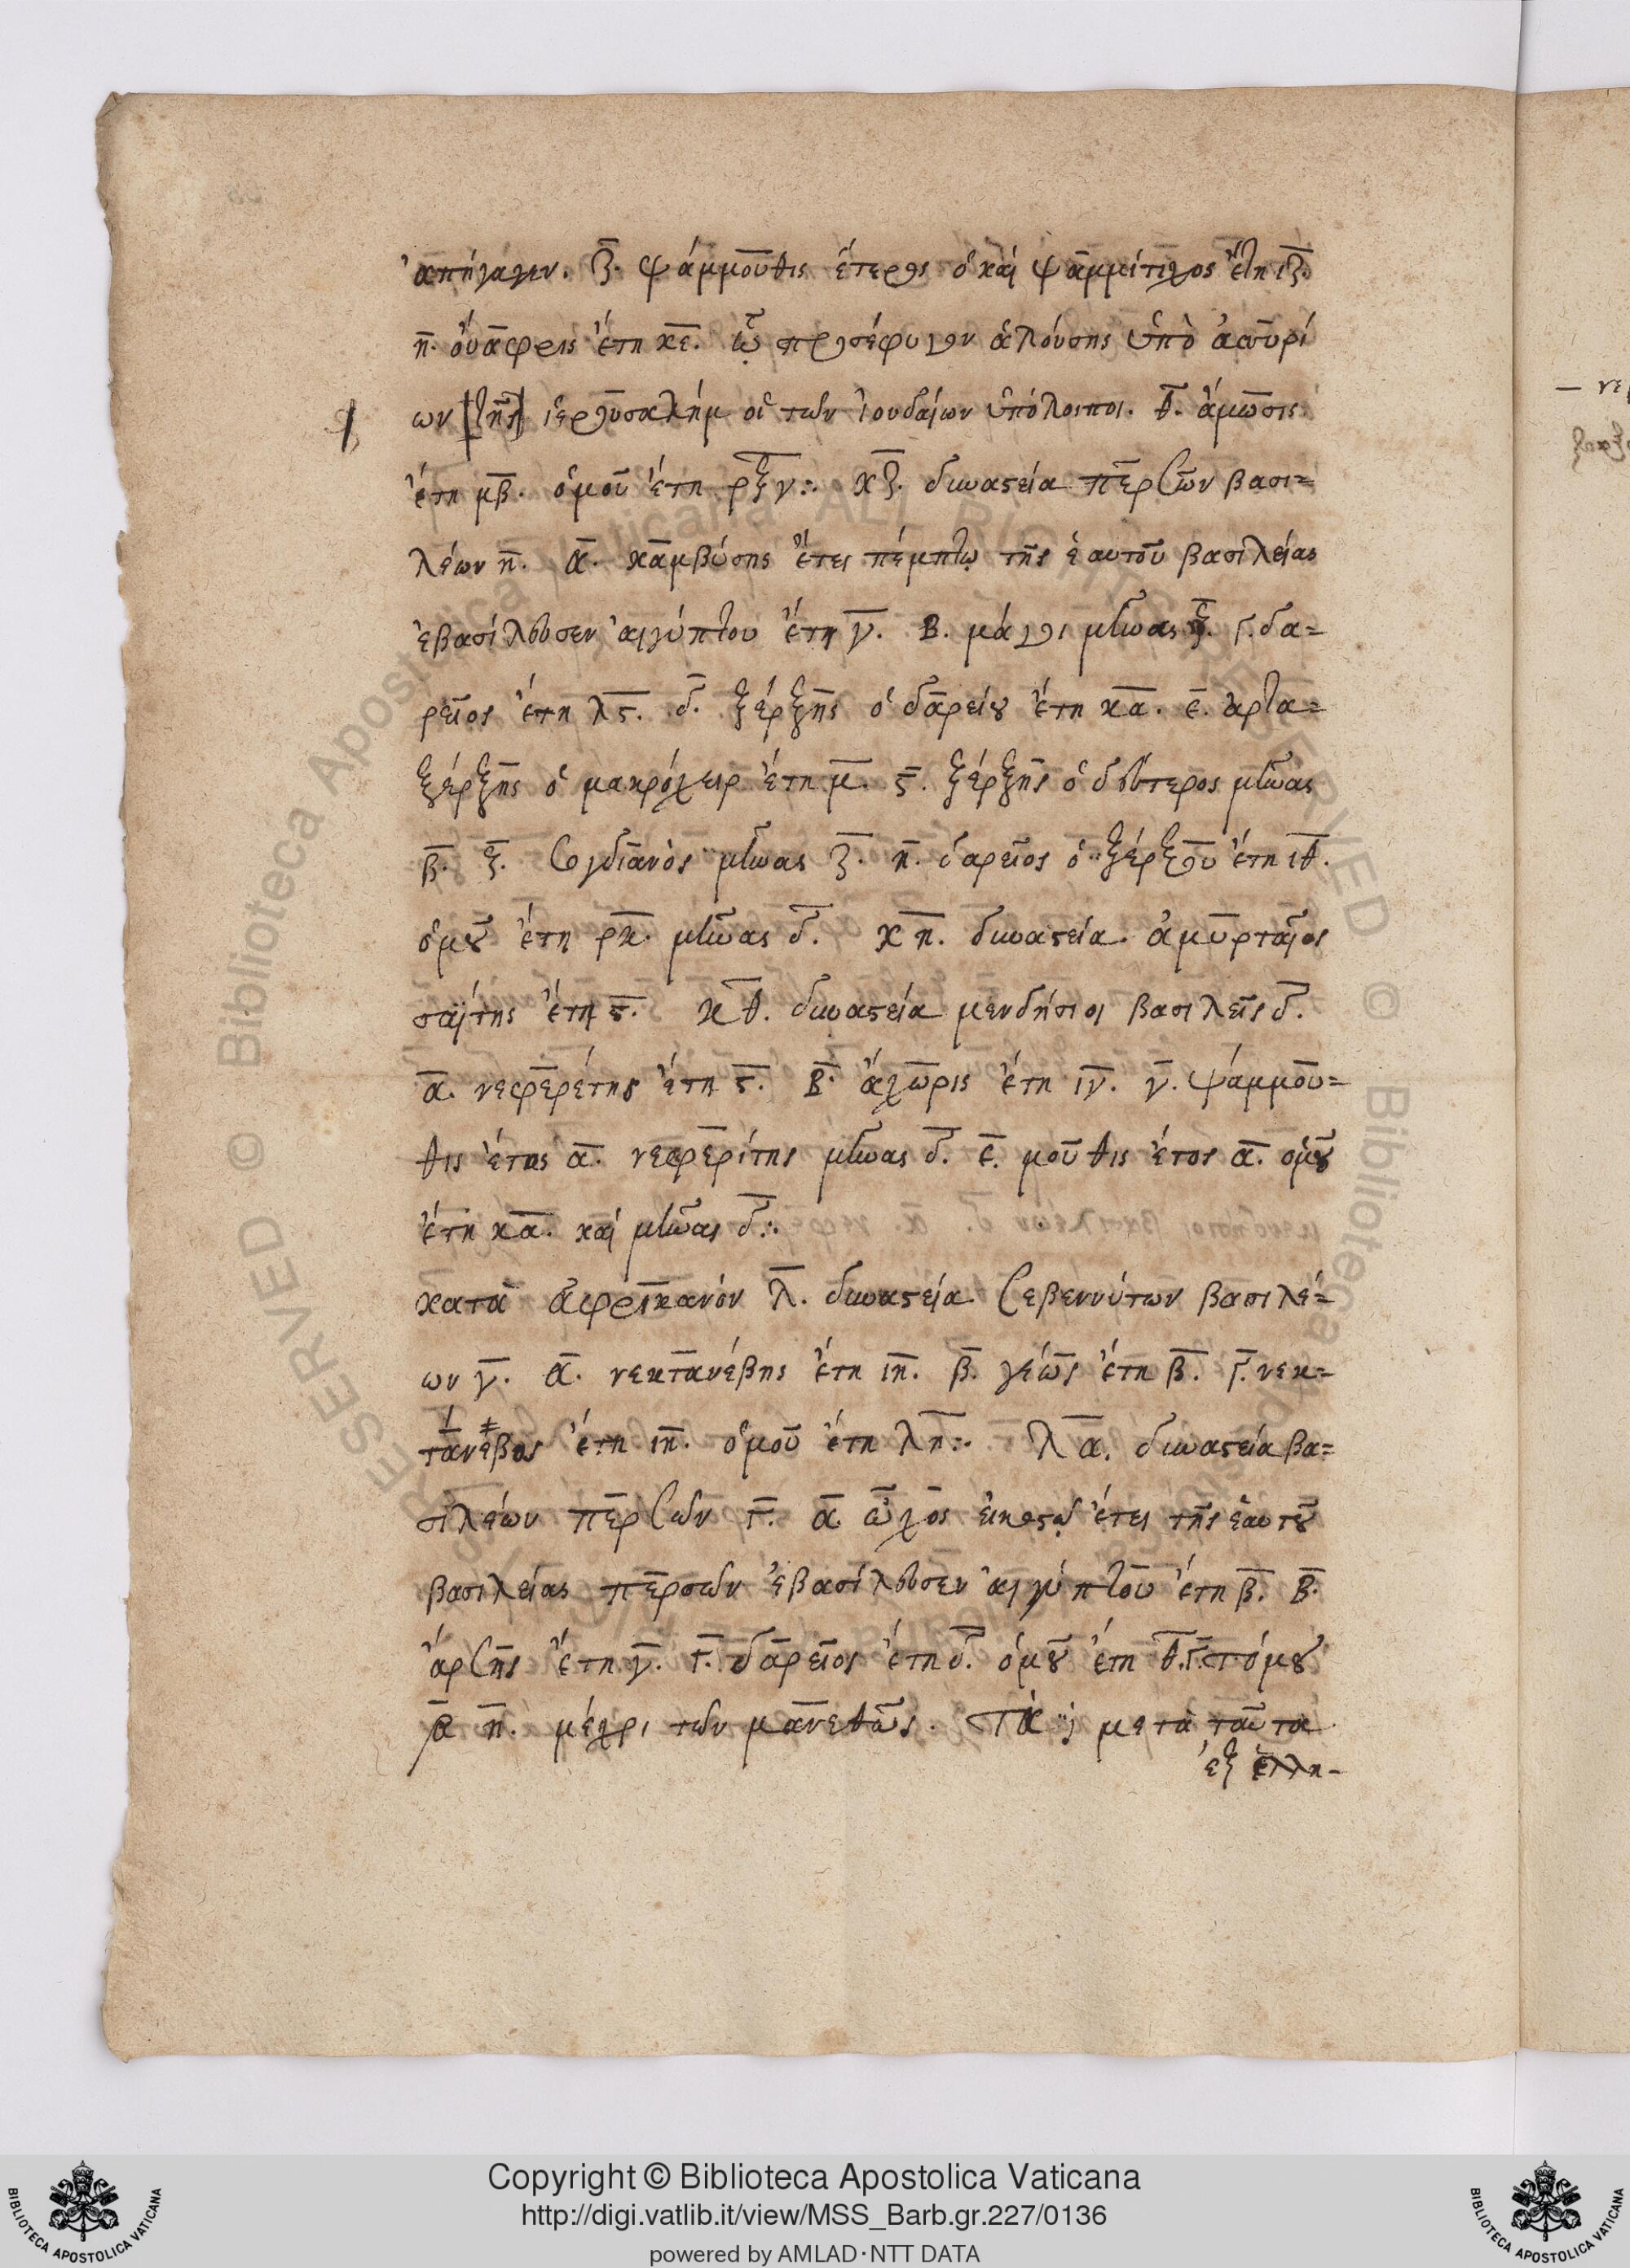 ἀπήγαγεν. ζ̅. ψάμμουθις ἕτερος ὁ καὶ ψαμμίτιχος ἔτη ιζ̅.
η̅. οὐάφρις ἔτη κε̅. ᾧ προσέφυγον ἁλούσης ὑπὸ ἀσσυρί
ων [τῆς] ἱερουσαλὴμ οἱ τῶν ἰουδαίων ὑπόλοιποι. θ̅. ἄμωσις
ἔτη μβ̅. ὁμοῦ ἔτη ρξγ̅:. κζ̅. δυναστεία περσῶν βασι=
λέων η̅. α̅. καμβύσης ἔτει πέμπτῳ τῆς ἑαυτοῦ βασιλείας
ἐβασίλευσεν αἰγύπτου ἔτη γ̅. β. μάγοι μῆνας ζ̅. γ. δα=
ρεῖος ἔτη λς̅. δ̅. ξέρξης ὁ δαρείου ἔτη κα̅. ε̅. ἀρτα=
ξέρξης ὁ μακρόχειρ ἔτη μ̅. ς̅. ξέρξης ὁ δεύτερος μῆνας
β̅. ζ̅. σογδιανὸς μῆνας ζ̅. η̅. δαρεῖος ὁ ξέρξου ἔτη ιθ̅.
ὁμοῦ ἔτη ρκ̅. μῆνας δ̅. κη̅. δυναστεία ἀμυρταῖος
σαΐτης ἔτη ς̅. κθ̅. δυναστεία μενδήσιοι βασιλεῖς δ̅.
α̅. νεφερέτης ἔτη ς̅. β̅. ἄχωρις ἔτη ιγ̅. γ̅. ψάμμου=
θις ἔτος α̅. νεφερίτης μῆνας δ̅. ε̅. μοῦθις ἔτος α̅. ὁμοῦ
ἔτη κα̅. καὶ μῆνας δ̅:.
κατὰ ἀφρικανόν λ̅. δυναστεία σεβεννύτων βασιλέ=
ων γ̅. α̅. νεκτανέβης ἔτη ιη̅. β̅. γέως ἔτη β̅. γ̅. νεκ=
τάνεβος ἔτη ιη̅. ὁμοῦ ἔτη λη̅:. λα̅. δυναστεία βα=
σιλέων περσῶν γ̅. α̅. ὦχος εἰκοστῷ ἔτει τῆς ἑαυτοῦ
βασιλείας περσῶν ἐβασίλευσεν αἰγύπτου ἔτη β̅. β̅.
ἀρσῆς ἔτη γ̅. γ̅. δαρεῖος ἔτη δ̅. ὁμοῦ ἔτη θ̅. γ̅. τόμου
͵α̅ν̅. μέχρι τῶν μανεθῶς. τὰ μετὰ ταῦτα
ἐξ ἑλλη-
— νε
Copyright © Biblioteca Apostolica Vaticana
http://digi.vatlib.it/view/MSS_Barb.gr.227/0136
powered by AMLAD·NTT DATA
BIBLIOTECA APOSTOLICA VATICANA
BIBLIOTECA APOSTOLICA VATICANA